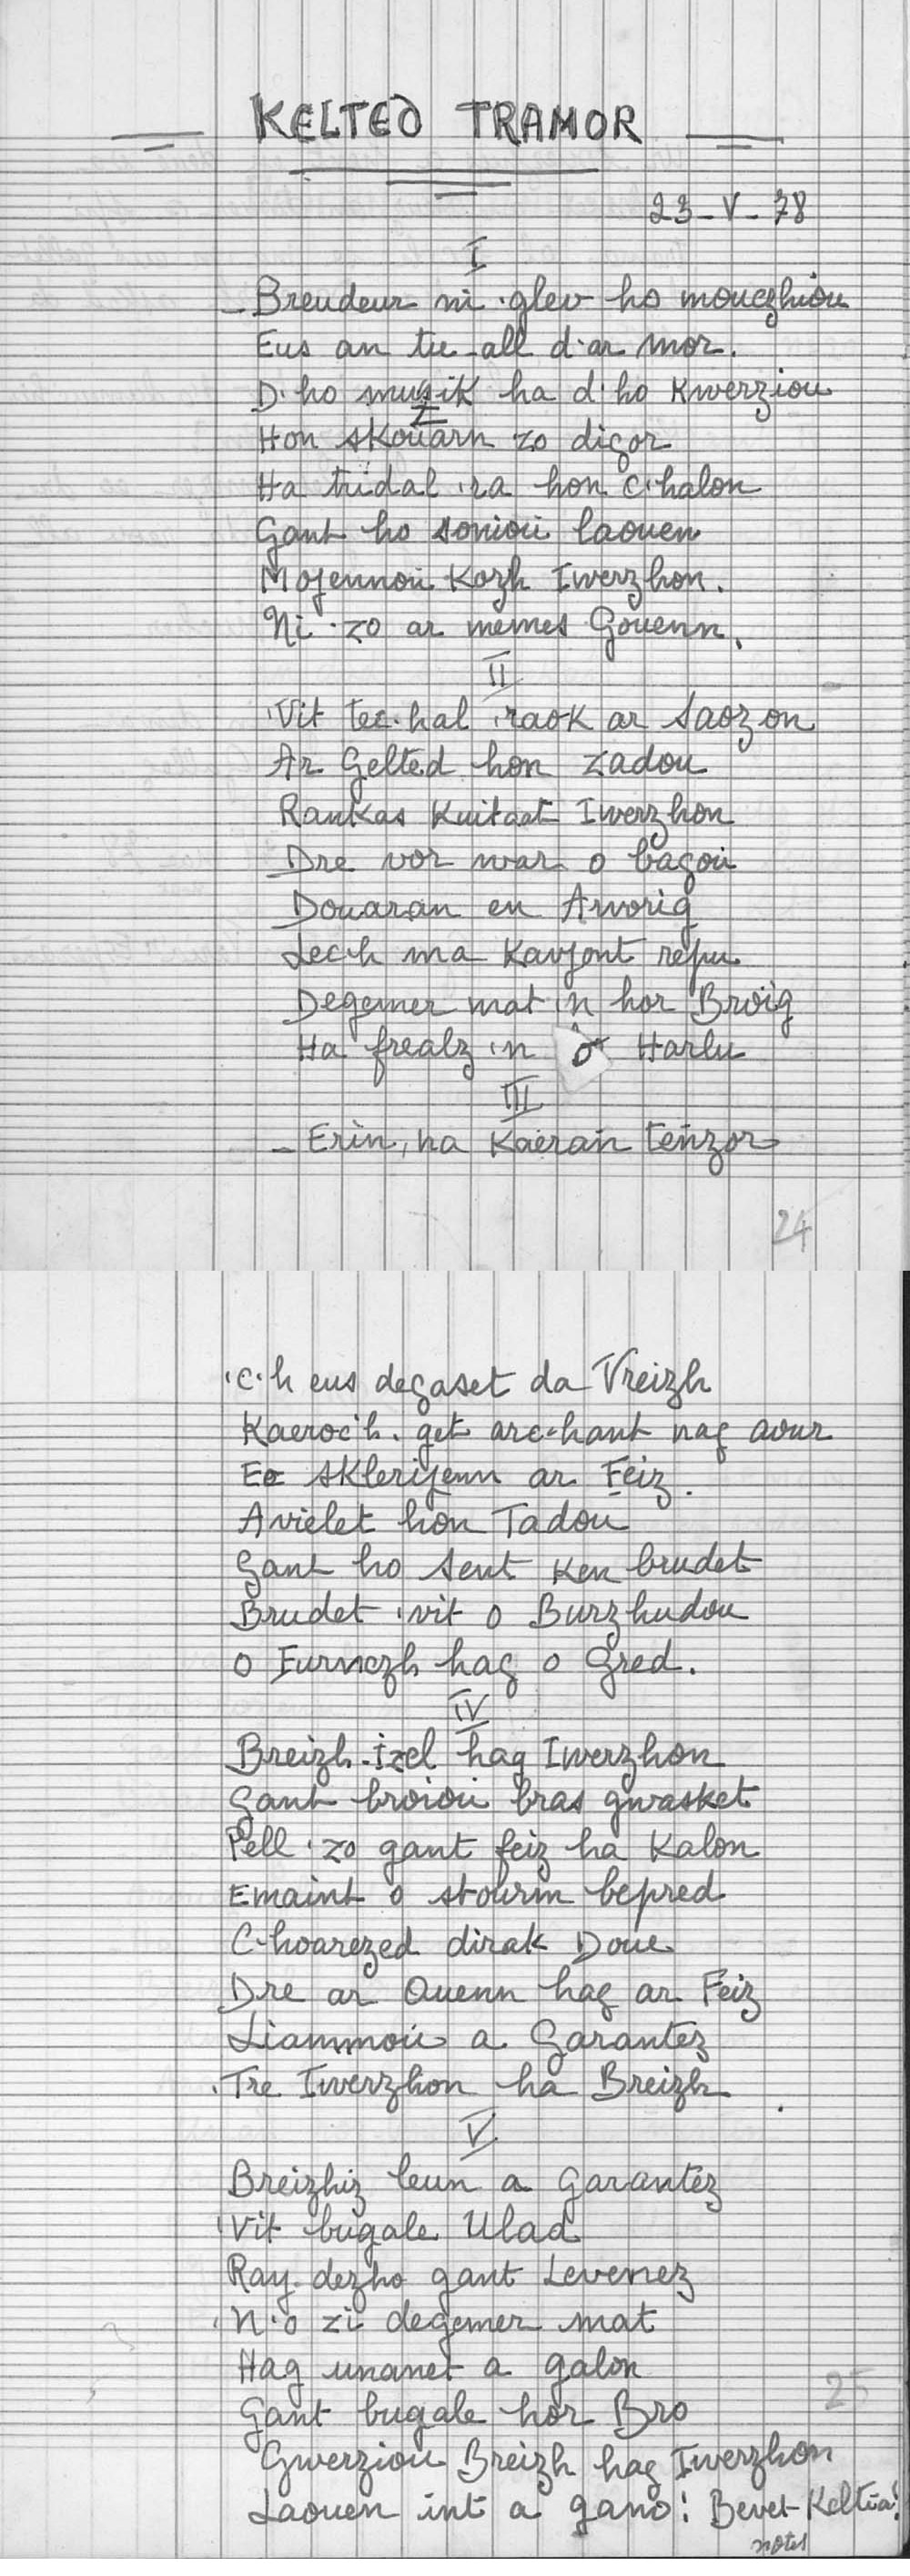 KELTED TRAMOR
23-V-78
I
- Breudeur ni 'glev ho mouezhiou
Eus an tu-all d'ar mor.
D'ho muzik ha d'ho Kwerziou
Hon skouarn zo digor
Ha tridal 'ra hon c'halon
Gant ho soniou laouen
Mojennou Kozh Iwerzhon.
Ni 'zo ar memes Gouenn.
II
'Vit tec'hal 'raok ar Saozon
Ar Gelted hon Zadou
Rankas Kuitaat Iwerzhon
Dre vor war o bagou
Douaran en Arvorig
Lec'h ma Kavjont repu
Degemer mat 'n hor Broig
Ha frealz 'n o Harlu
III
- Erin, na Kaeran tenzor
24
'C'h eus degaset da Vreizh
Kaeroc'h get arc'hant nag aour
Eo sklerijenn ar Feiz.
Avielet hon Tadou
Gant ho Sent ken brudet
Brudet 'vit o Burzhudou
O Furnezh hag o Gred.
IV
Breizh-izel hag Iwerzhon
Gant broiou bras gwasket
Pell 'zo gant feiz ha Kalon
Emaint o stourm bepred
C'hoarezed dirak Doue
Dre ar Ouenn hag ar Feiz
Liammou a Garantez
'Tre Iwerzhon ha Breizh.
V
Breizhiz leun a Garantez
'Vit bugale Ulad
Ray dezho gant Levenez
'N o zi degemer mat
Hag unanet a galon
Gant bugale hor Bro
25
Gwerziou Breizh hag Iwerzhon
Laouen int a gano! Bevet Keltia!
notes